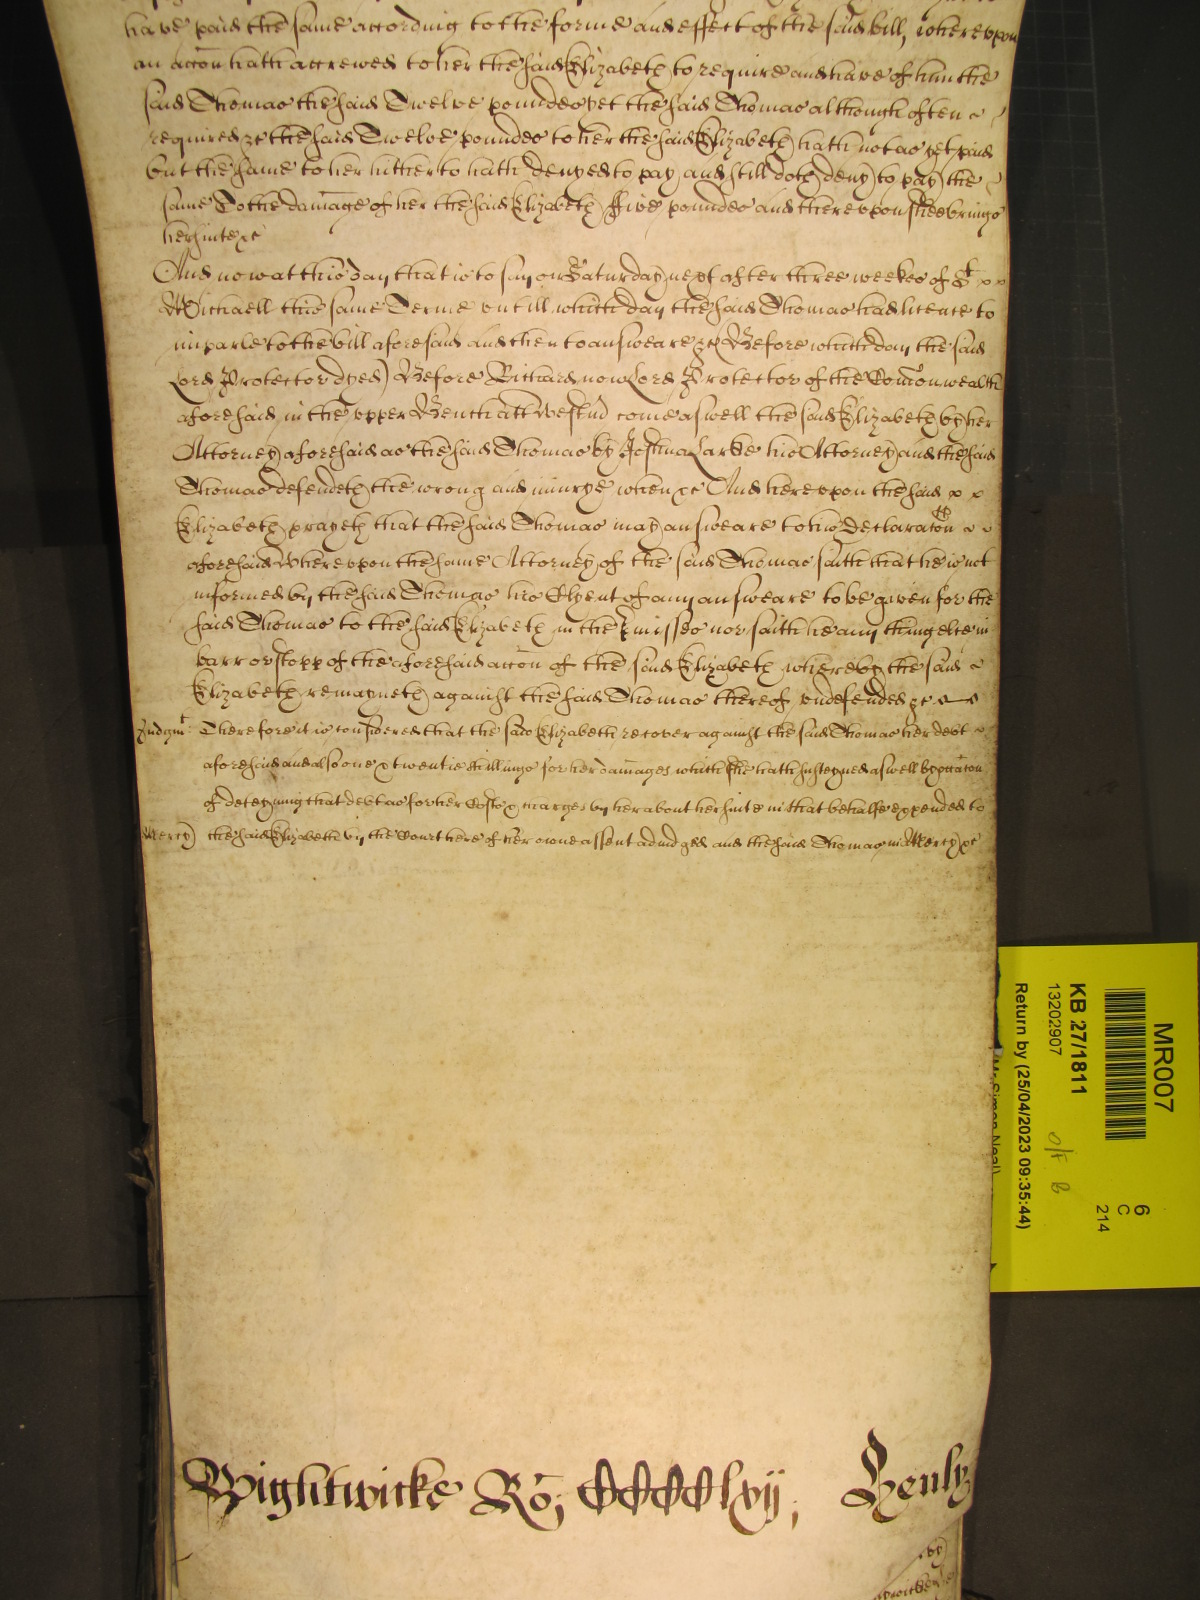 have paid the same according to the forme and effect of the said bill, whereupon
an accon hath accrewed to her the said Elizabeth to require and have of him the
said Thomas the said Twelve poundes yet the said Thomas although often
required &c the said Twelve poundes to her the said Elizabeth hath not as yet paid
but the same to her hitherto hath denyed to pay and still doth deny to pay the
same To the damage of her the said Elizabeth Five poundes and thereupon shee brings
her suite &c
And now at this day that is to say on Saturday next after three weekes of St
Michaell this same Terme untill which day the said Thomas had licence to
imparle to the bill aforesaid and then to answeare &c (Before which day the said
Lord Protector dyed) Before Richard now Lord Protector of the Comonwealth
aforesaid in the upper Bench att Westmr come aswell the said Elizabeth by her
Attorney aforesaid as the said Thomas by Joshua Larke his Attorney and the said
Thomas defendeth the wrong and iniurye when &c And hereupon the said
Elizabeth prayeth that the said Thomas may answeare to his Declaracon
aforesaid Whereupon the same Attorney of the said Thomas saith that he is not
informed by the said Thomas his Clyent of any answeare to be given for the
said Thomas to the said Elizabeth in the pmisses nor saith he any thing else in
barr or stopp of the aforesaid accon of the said Elizabeth whereby the said
Elizabeth remayneth against the said Thomas thereof undefended &c
Judgmt: Therefore it is considered that the said Elizabeth recover against the said Thomas her debt
aforesaid and also one & twentie shillings for her damages which shee hath susteyned aswell by occacon
of deteyning that debt as for her Costs & charges by her about her suite in that behalfe expended to
Mercy the said Elizabeth by the Court here of her owne assent adiudged and the said Thomas in Mercy &c
Wightwicke Ro; CCCClxvij; Henly
MR007
6
C
214
KB 27/1811
13202907
O/F B
Return by (25/04/2023 09:35:44)
(Mr Simon Neal)